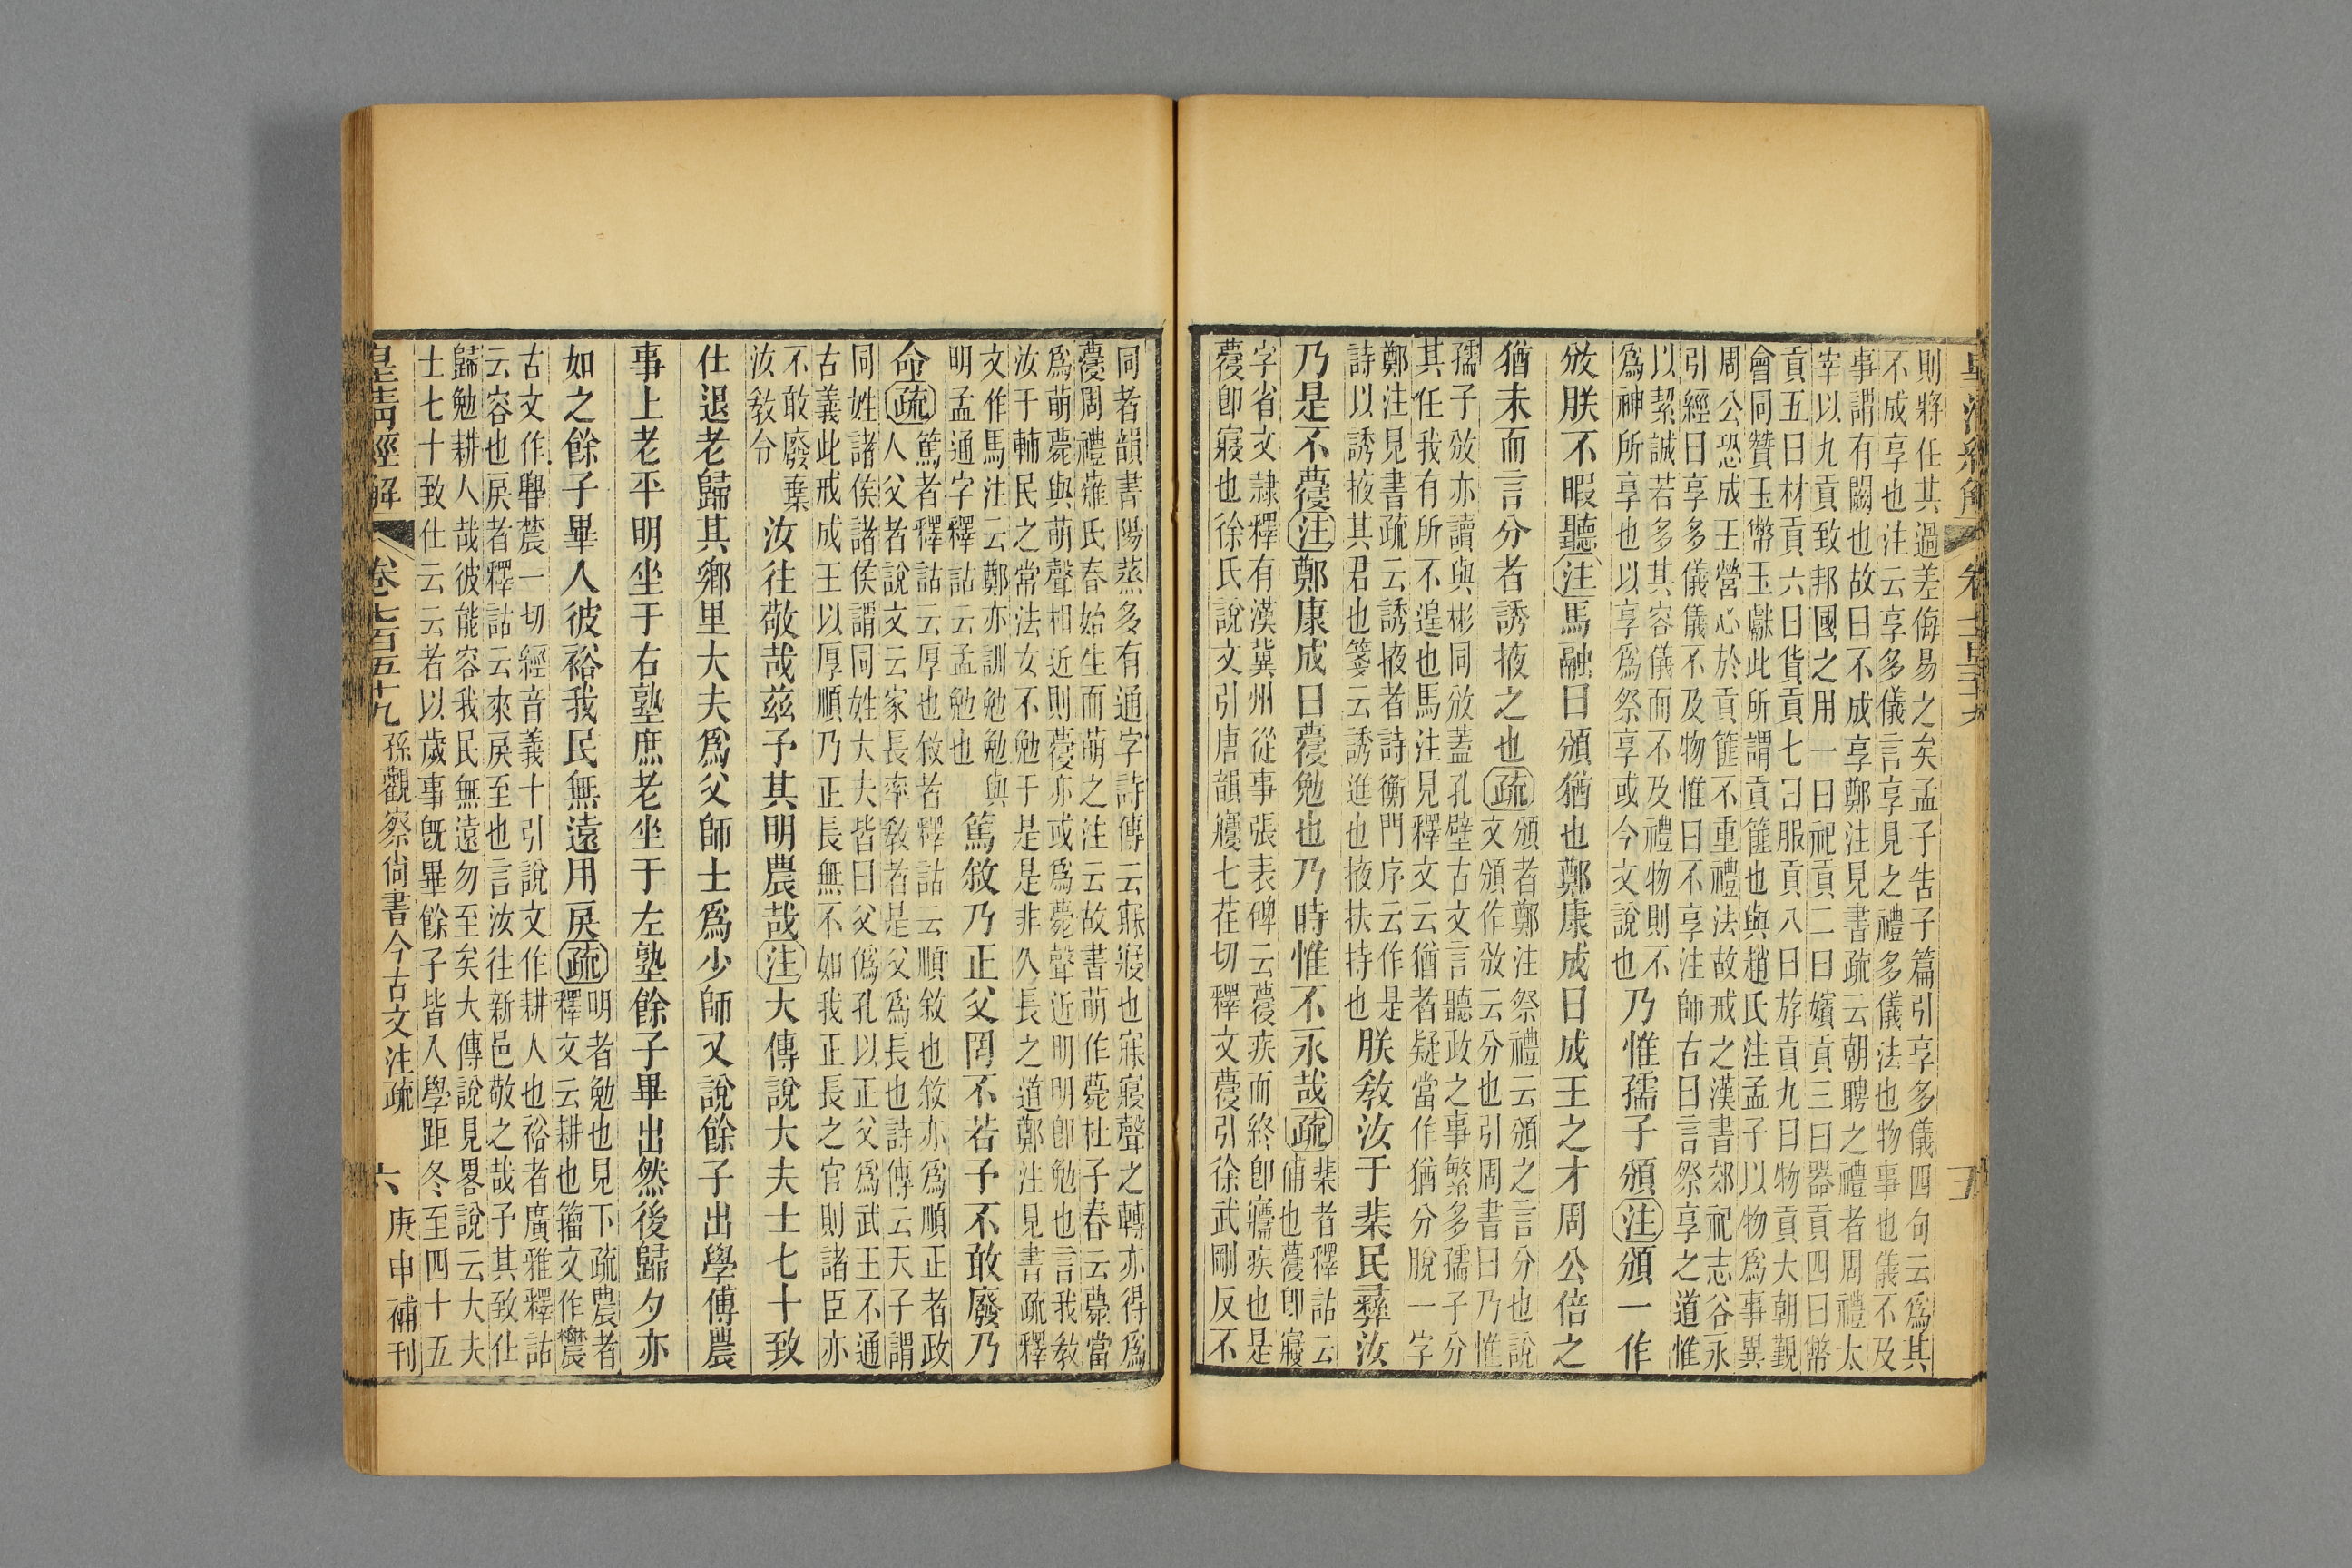 則將任其過差侮易之矣孟子告子篇引享多儀四句云爲其
不成享也注云享多儀言享見之禮多儀法也物事也儀不及
事謂有闕也故曰不成享鄭注見書疏云朝聘之禮者周禮太
宰以九貢致邦國之用一曰祀貢二曰嬪貢三曰器貢四曰幣
貢五曰材貢六曰貨貢七曰服貢八曰斿貢九曰物貢大朝覲
會同贊玉幣玉獻此所謂貢篚也與趙氏注孟子以物爲事異
周公恐成王營心於貢篚不重禮法故戒之漢書郊祀志谷永
引經曰享多儀儀不及物惟曰不享注師古曰言祭享之道惟
以絜誠若多其容儀而不及禮物則不
爲神所享也以享爲祭享或今文說也
乃惟孺子頒注頒一作
攽朕不暇聽注馬融曰頒猶也鄭康成曰成王之才周公倍之
猶未而言分者誘掖之也疏
頒者鄭注祭禮云頒之言分也說
文頒作攽云分也引周書曰乃惟
孺子攽亦讀與彬同攽蓋孔壁古文言聽政之事繁多孺子分
其任我有所不遑也馬注見釋文云猶者疑當作猶分脫一字
鄭注見書疏云誘掖者詩衡門序云作是
詩以誘掖其君也箋云誘進也掖扶持也
朕敎汝于棐民彝汝
乃是不蘉注鄭康成曰蘉勉也乃時惟不永哉疏
棐者釋詁云
俌也蘉卽寢
字省文隸釋有漢冀州從事張表碑云蘉疾而終卽癮疾也是
蘉卽寢也徐氏說文引唐韻癮七荏切釋文蘉引徐武剛反不
同者韻書陽蒸多有通字詩傳云寐寢也寐寢聲之轉亦得爲
蘉周禮薙氏春始生而萌之注云故書萌作甍杜子春云甍當
爲萌甍與萌聲相近則蘉亦或爲甍聲近明明卽勉也言我敎
汝于輔民之常法女不勉于是是非久長之道鄭注見書疏釋
文作馬注云鄭亦訓勉勉與
明孟通字釋詁云孟勉也
篤敘乃正父罔不若予不敢廢乃
命疏
篤者釋詁云厚也敘者釋詁云順敘也敘亦爲順正者政
人父者說文云家長率敎者是父爲長也詩傳云天子謂
同姓諸侯諸侯謂同姓大夫皆曰父僞孔以正父爲武王不通
古義此戒成王以厚順乃正長無不如我正長之官則諸臣亦
不敢廢棄
汝敎分
汝往敬哉兹予其明農哉注大傳說大夫士七十致
仕退老歸其鄉里大夫爲父師士爲少師又說餘子出學傅農
事上老平明坐于右塾庶老坐于左塾餘子畢出然後歸夕亦
如之餘子畢人彼裕我民無遠用戾疏
明者勉也見下疏農者
釋文云耕也籀文作辳
古文作𦦥䢉一切經音義十引說文作耕人也裕者廣雅釋詁
云容也戾者釋詁云來戾至也言汝往新邑敬之哉予其致仕
歸勉耕人哉彼能容我民無遠勿至矣大傳說見畧說云大夫
士七十致仕云云者以歲事旣畢餘子皆入學距冬至四十五
皇淸經解 卷七百五十九 孫觀察尙書今古文注疏 六 庚申補刊